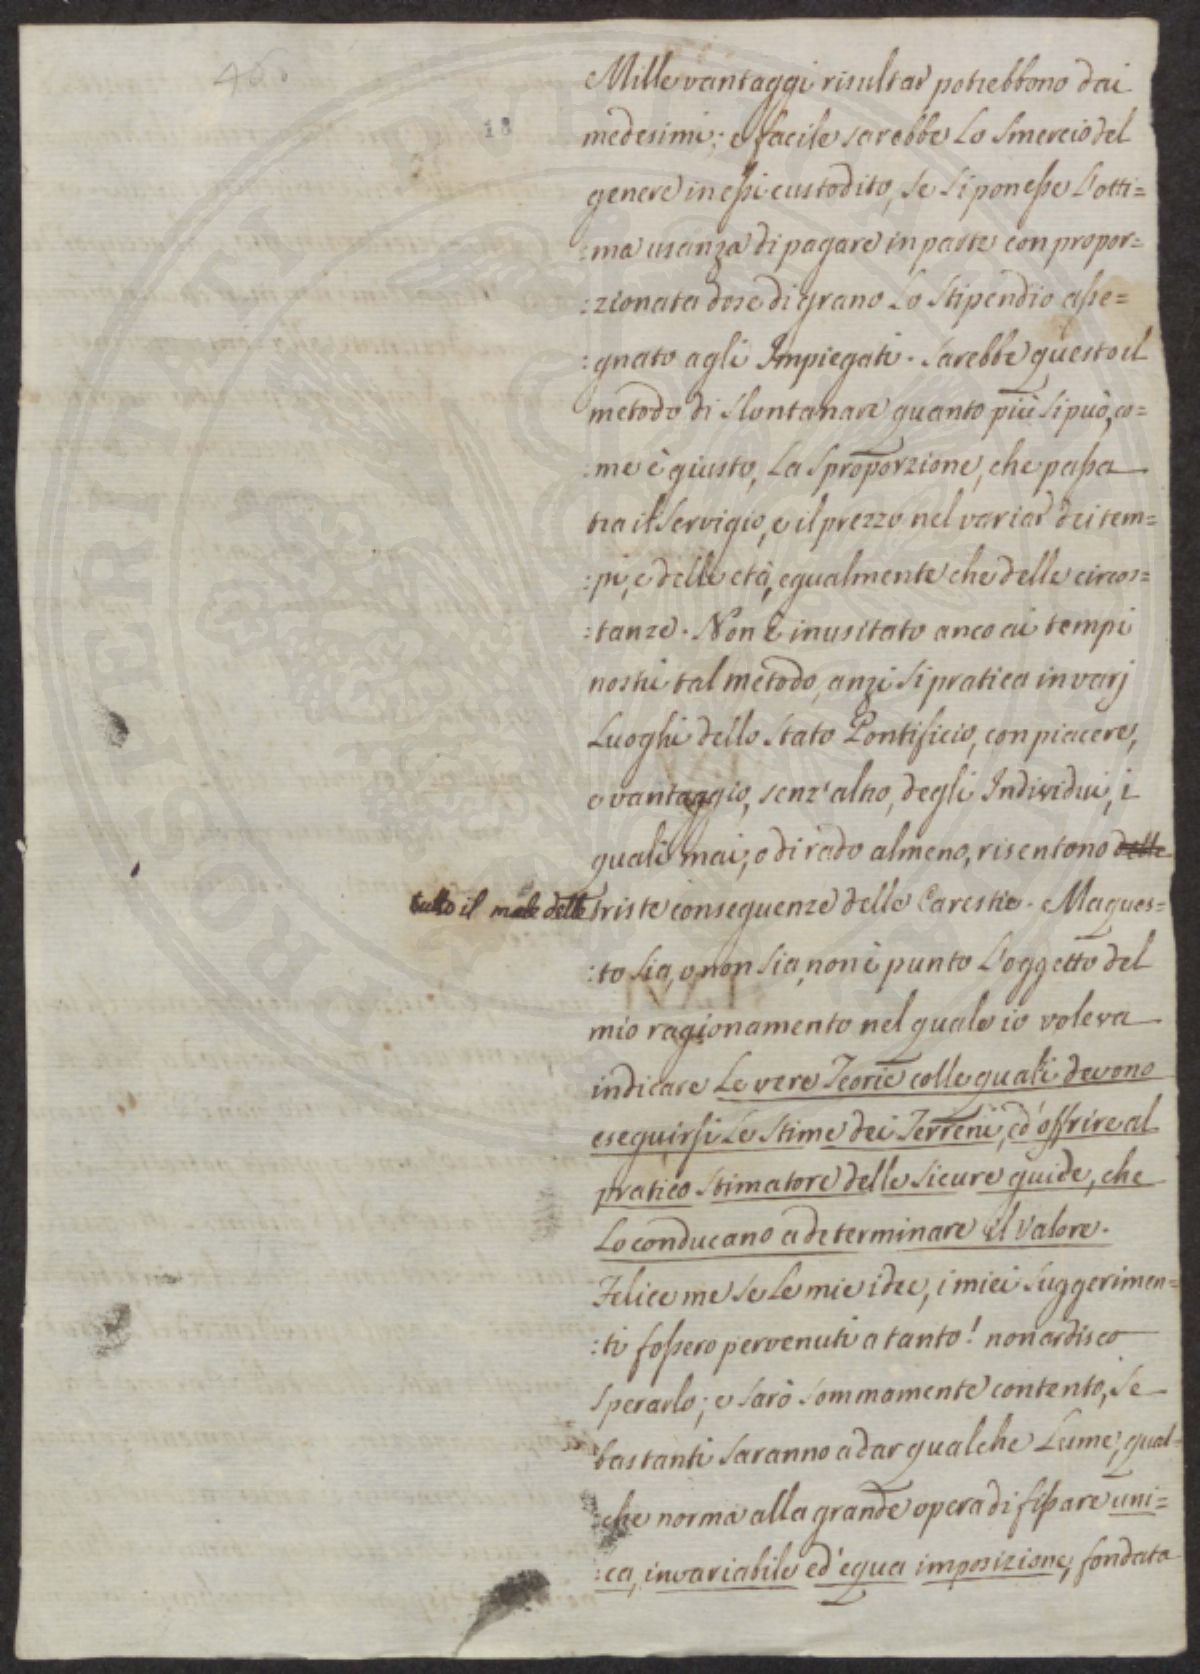 18
Mille vantaggi risultar potrebbono dai
medesimi; e facile sarebbe lo smercio del
genere in essi custodito, se si ponesse l'otti=
:ma usanza di pagare in parte con propor=
:zionata dose di grano lo stipendio asse=
:gnato agli Impiegati. Sarebbe questo il
metodo di slontanare quanto più si può, co=
:me è giusto, la sproporzione, che passa
tra il servigio, e il prezzo nel variar dei tem=
:pi, e delle età, egualmente che delle circos=
:tanze. Non è inusitato anco ai tempi
nostri tal metodo, anzi si pratica in varj
Luoghi dello Stato Pontificio, con piacere,
e vantaggio, senz'altro, degli Individui, i
quali mai, o di rado almeno, risentono delle
tutto il male delle triste conseguenze delle Carestie. Ma ques=
:to sia, o non sia, non è punto l'oggetto del
mio ragionamento nel quale io voleva
indicare Le vere Teorie colle quali devono
eseguirsi Le Stime dei Terreni, ed offrire al
pratico stimatore delle sicure guide, che
Lo conducano a determinare il valore.
Felice me se le mie idee, i miei suggerimen=
:ti fossero pervenuti a tanto! non ardisco
sperarlo; e sarò sommamente contento, se
bastanti saranno a dar qualche Lume, qual=
:che norma alla grande opera di fissare uni=
:ca, invariabile ed equa imposizione, fondata